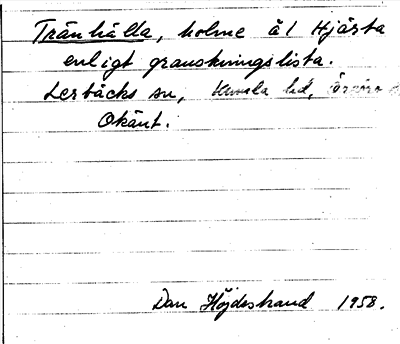 Tränhälla, holme äl Hjärta
enligt granskningslista.
Lerbäcks sn, Kumla hd, Örebro
Okänt.
Dan Höjdestrand 1958.